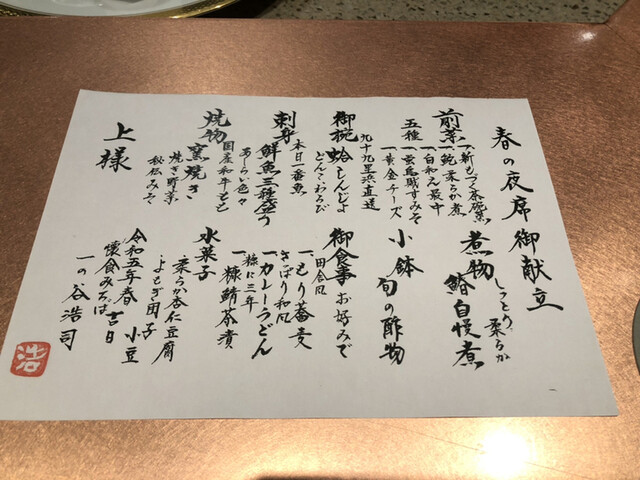 春の夜席御献立
前菜
五種
一、新もづく茶碗蒸
一、鮑柔らか煮
一、白和え最中
一、蛍烏賊すみそ
一、黄金チーズ
御椀 蛤しんじょ
九十九里浜直送
どんこわらび
刺身 鮮魚三種盛り
本日一番魚
あしらい色々
焼物 窯焼き
国産和牛もも
焼き野菜
秘伝みそ
上様
煮物
しっとり、柔らか
鰆自慢煮
小鉢 旬の酢物
御食事 お好みで
田舎風
一、もり蕎麦
さっぱり和風
一、カレーうどん
糠に三年
一、糠鯖茶漬
水菓子
・柔らか杏仁豆腐
・よもぎ団子 小豆
令和五年春 吉日
懐食みちば
一の谷浩司
浩